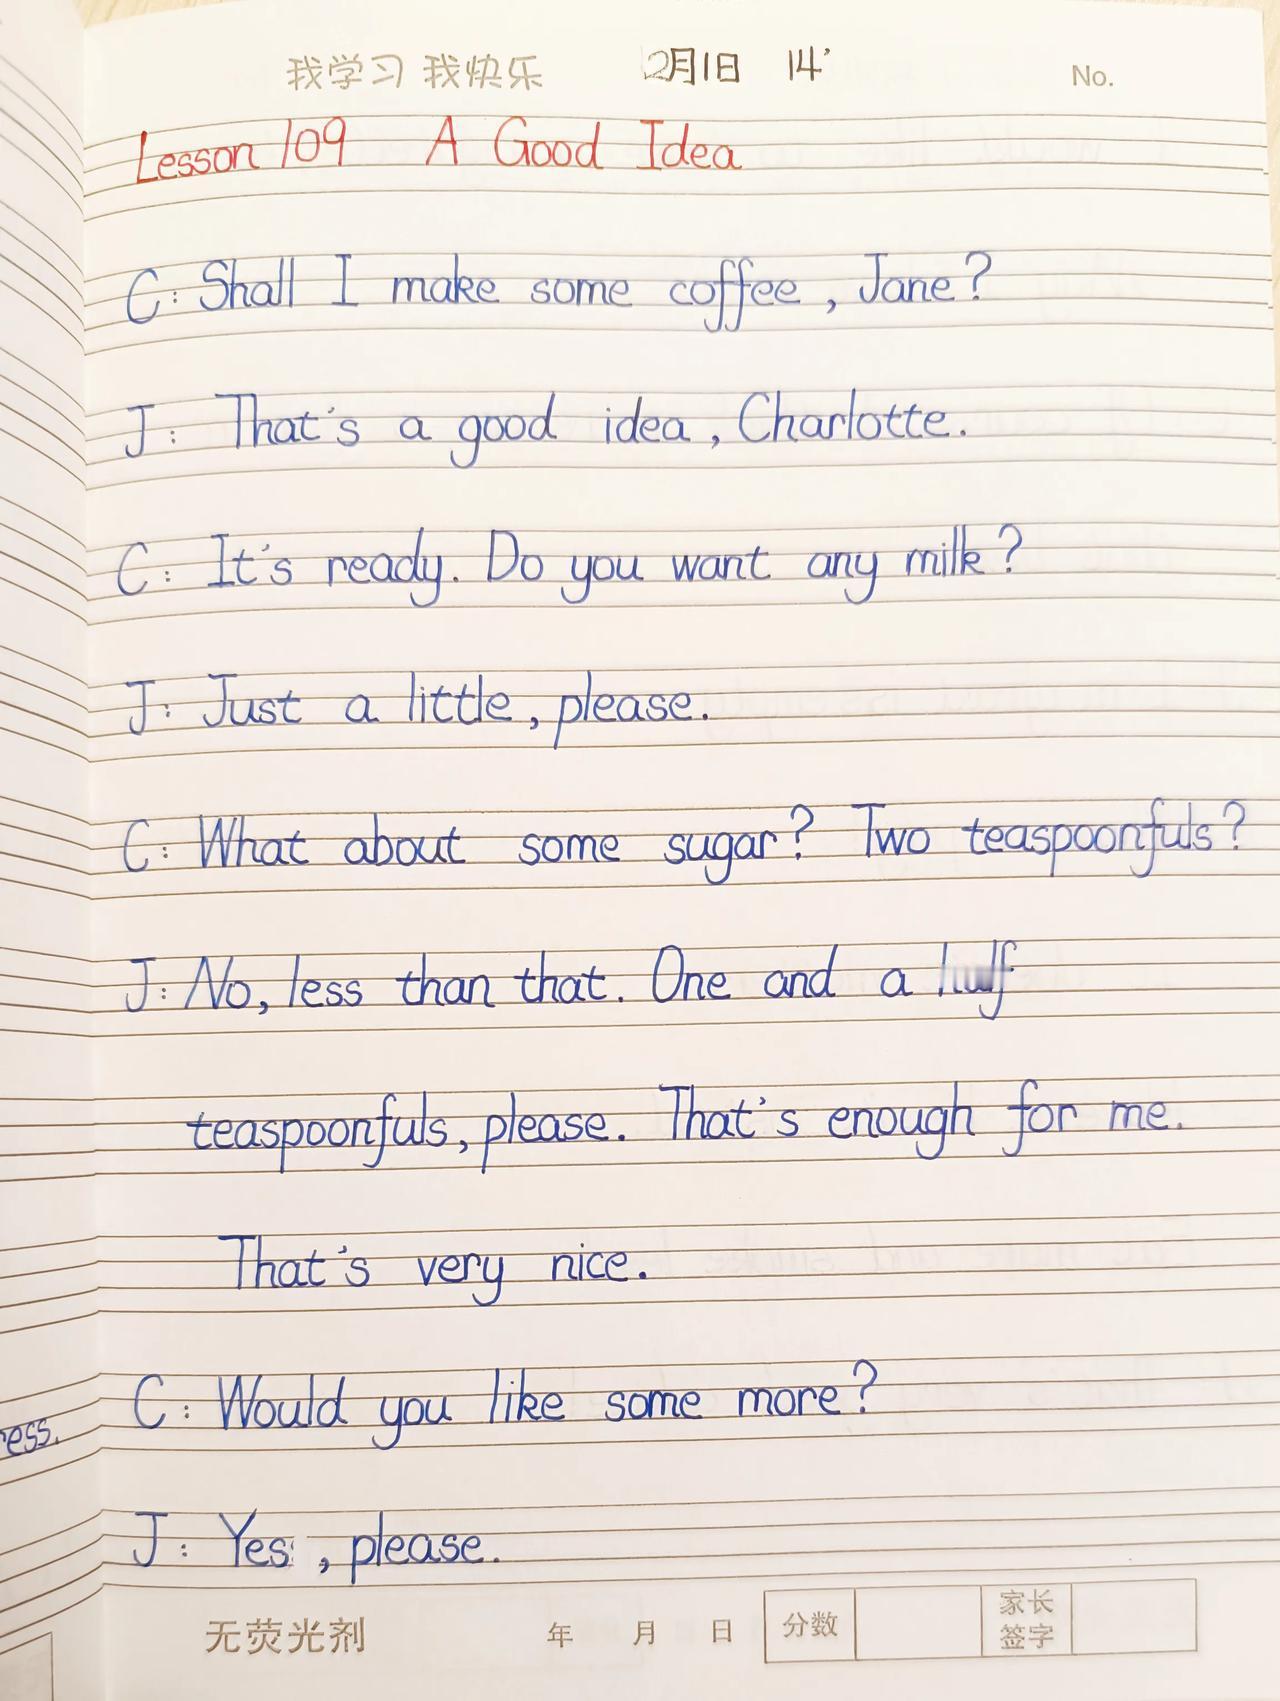 我学习 我快乐 2月1日 14' No.
Lesson 109 A Good Idea
C: Shall I make some coffee, Jane?
J: That's a good idea, Charlotte.
C: It's ready. Do you want any milk?
J: Just a little, please.
C: What about some sugar? Two teaspoonfuls?
J: No, less than that. One and a half
teaspoonfuls, please. That's enough for me.
That's very nice.
C: Would you like some more?
ess.
J: Yes, please.
无荧光剂 年 月 日 分数 家长签字